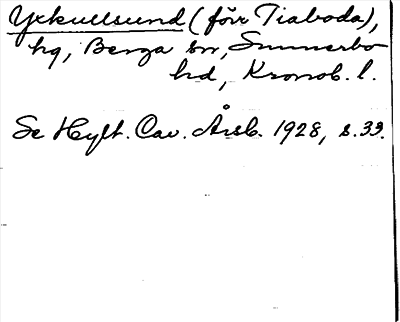 Yxkullsund (förr Tiaboda),
hg, Berga sn, Sunnerbo
hd, Kronob. l.
Se Hylt. Cav. Årsb. 1928, s. 39.